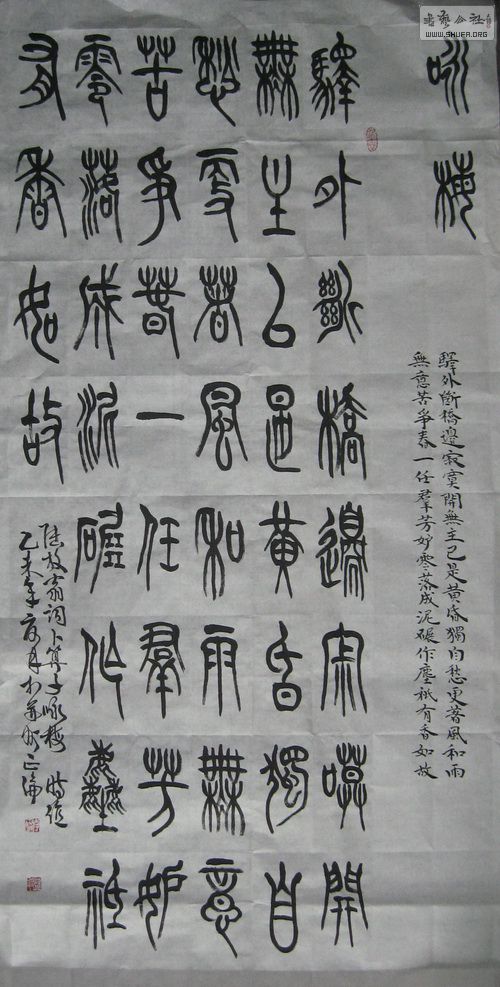 書藝公社
WWW.SHUFA.ORG
咏梅
驛外斷橋邊寂寞開無主已是黃昏獨自愁更著風和雨
無意苦爭春一任羣芳妒零落成泥碾作塵祇有香如故
驛外斷橋邊寂寞開
無主已是黃昏獨自
愁更著風和雨無意
苦爭春一任羣芳妒
零落成泥碾作塵祇
有香如故
陸放翁詞卜算子咏梅 時維
乙未年月於并州正